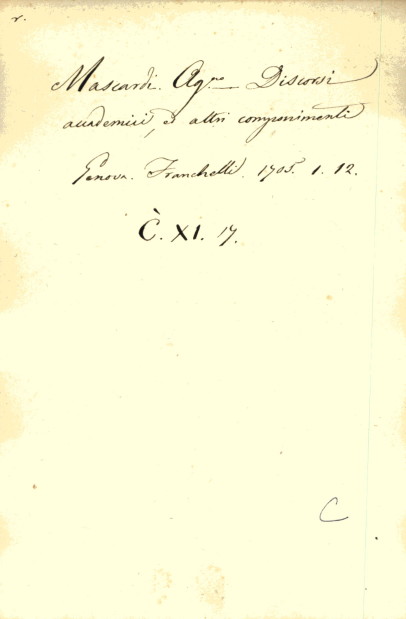 r.
Mascardi. Ag.no Discorsi
accademici, ed altri componimenti
Genova. Franchelli. 1705. 1. 12.
C. XI. 17.
C